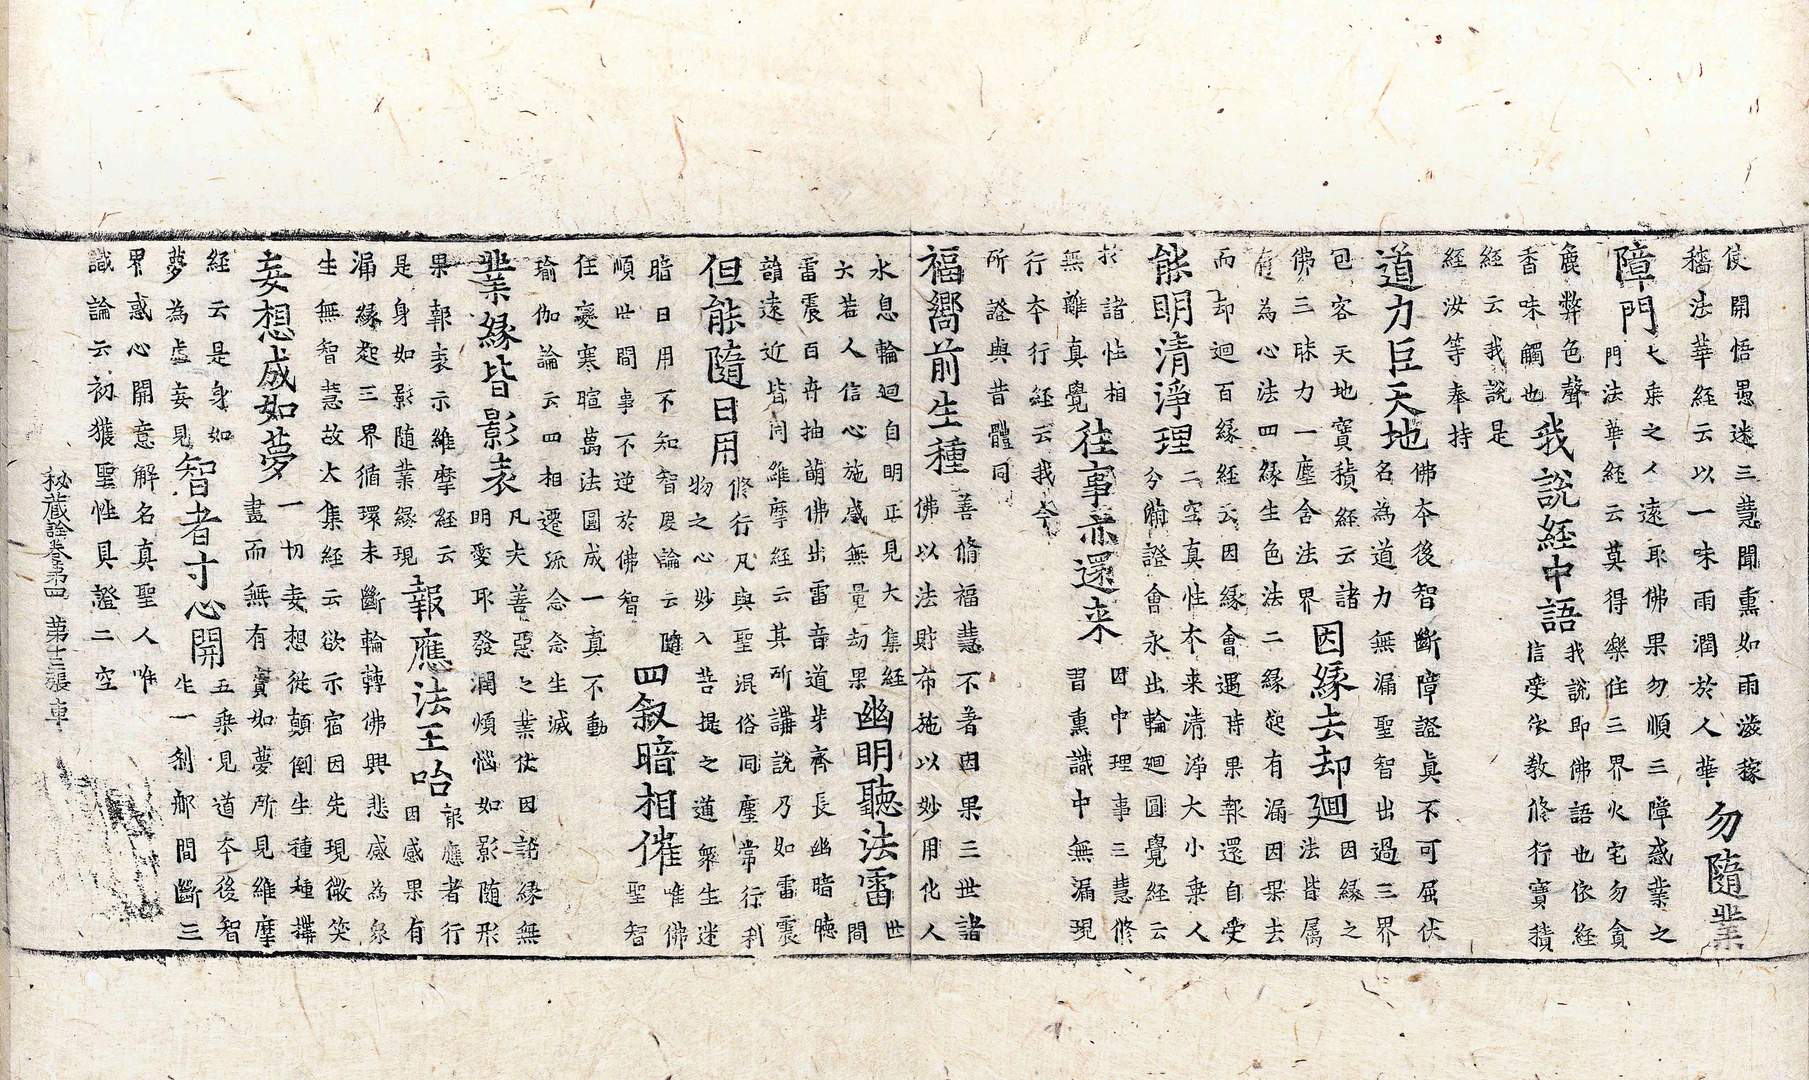 使開悟愚迷三慧聞熏如雨滋稼
穡法華經云以一味雨潤於人華
勿隨業
障門
大乘之人遠取佛果勿順三障惑業之
門法華經云莫得樂住三界火宅勿貪
麁弊色聲
香味觸也
我說經中語
我說即佛語也依經
信受依教修行寶積
經云我說是
經汝等奉持
道力巨天地
佛本後智斷障證真不可屈伏
名為道力無漏聖智出過三界
包容天地寶積經云諸
佛三昧力一塵含法界
因緣去却廻
因緣之
法皆屬
有為心法四緣生色法二緣起有漏因果去
而却迴百緣經云因緣會遇時果報還自受
能明清淨理
二空真性本来清淨大小乗人
兮偹證會永出輪廻圓覺經云
扵諸性相
無離真覺
往事亦還来
因中理事三慧修
習熏識中無漏現
行本行經云我今
所證與昔體同
福嚮前生種
善脩福慧不著因果三世諸
佛以法財布施以妙用化人
水息輪迴自明正見大集經
大若人信心施感無量劫果
幽明聽法雷
世
間
雷震百卉抽萌佛出雷音道芽齊長幽暗聴
韻遠近皆同維摩經云其所講說乃如雷震
但能隨日用
修行凡與聖混俗同塵常行利
物之心妙入菩提之道衆生迷
暗日用不知智度論云隨
順世間事不逆於佛智
四敘暗相催
唯佛
聖智
住變寒暄萬法圓成一真不動
瑜伽論云四相遷流念念生滅
業緣皆影表
凡夫善惡之業從因託緣無
明愛取發潤煩惱如影隨形
果報表示維摩經云
是身如影隨業緣現
報應法王咍
報應者行
因感果有
漏緣起三界循環未斷輪轉佛興悲感為衆
生無智慧故大集經云欲示宿因先現微笑
妄想成如夢
一切妄想從顛倒生種種搆
畫而無有實如夢所見維摩
經云是身如
夢為虛妄見
智者寸心開
五乘見道本後智
生一剎那間斷三
界惑心開意解名真聖人唯
識論云初獲聖性具證二空
秘藏詮卷第四 第十三張 車